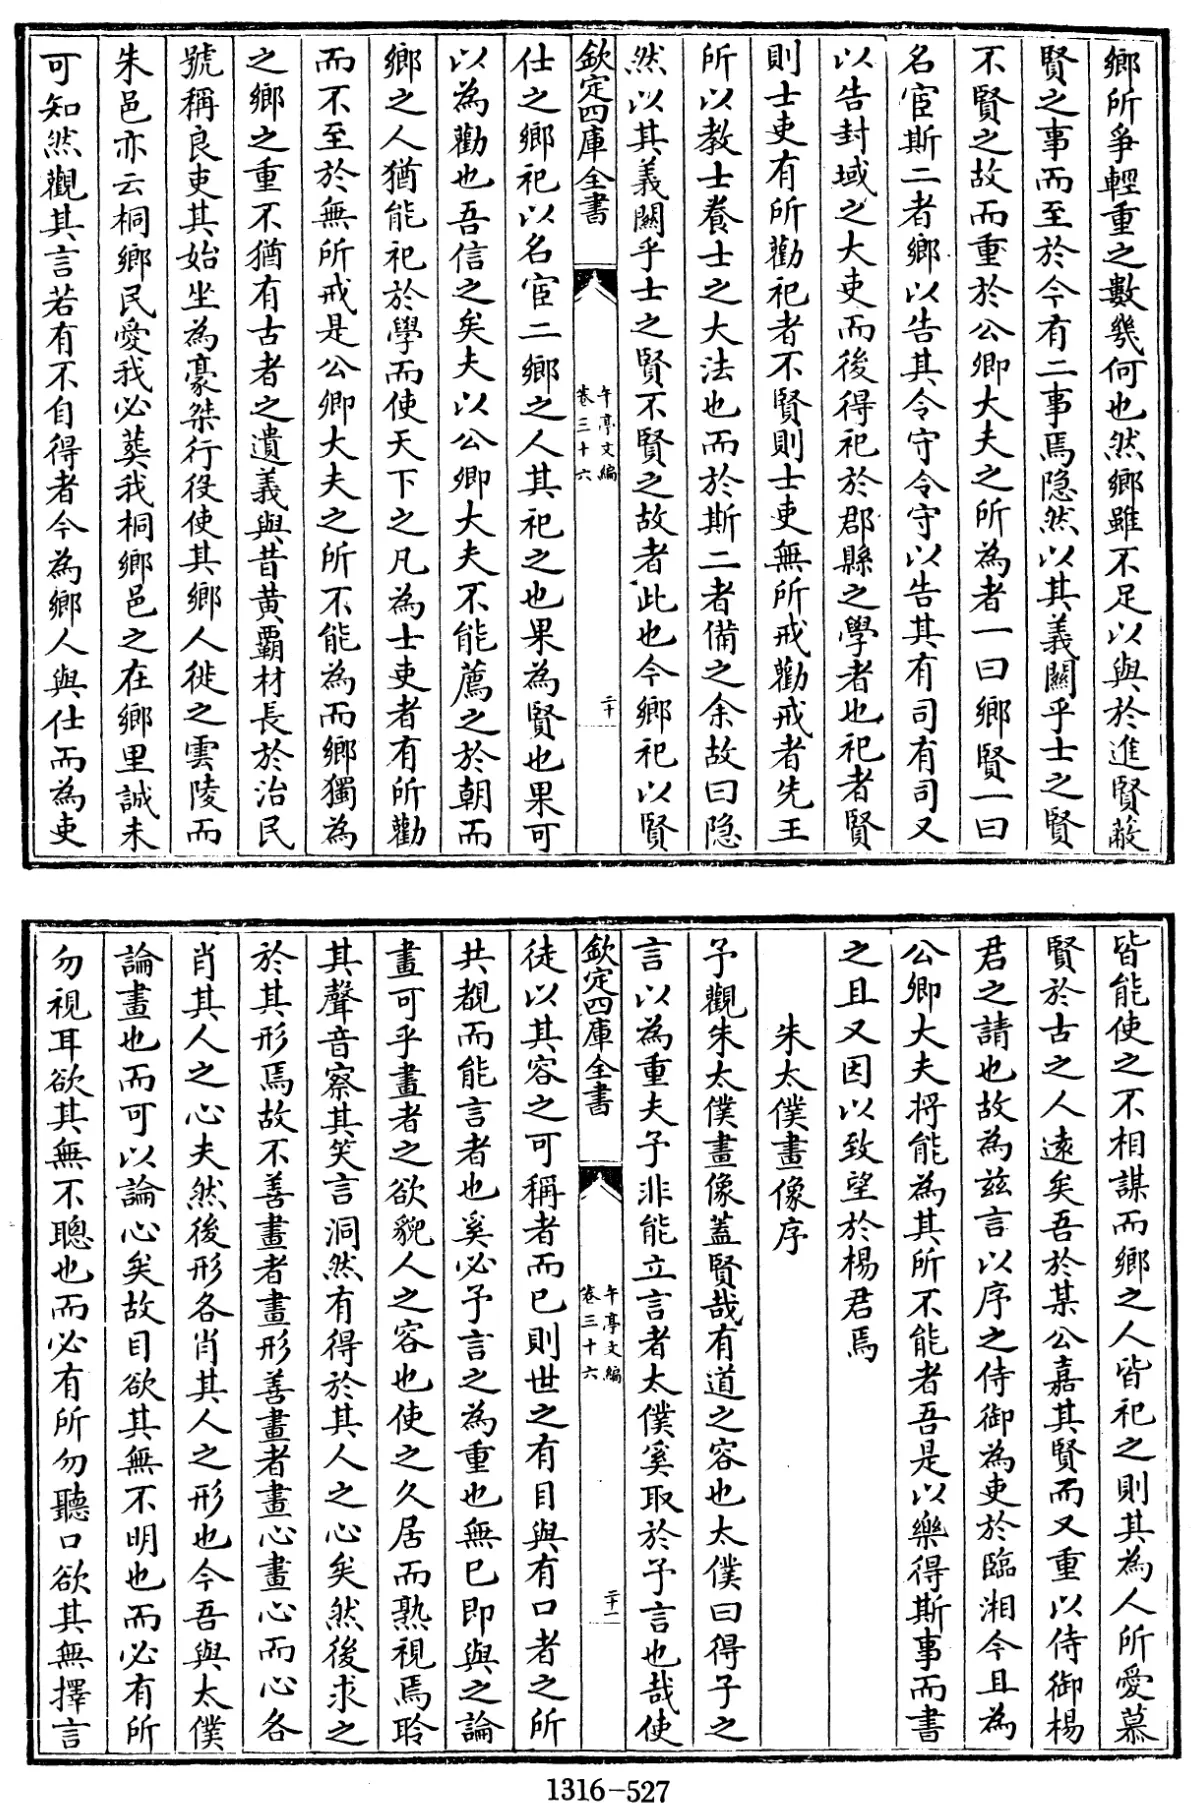 鄉所爭輕重之數幾何也然鄉雖不足以與於進賢蔽
賢之事而至於今有二事焉隐然以其義關乎士之賢
不賢之故而重於公卿大夫之所為者一曰鄉賢一曰
名宦斯二者鄉以告其令守令守以告其有司有司又
以告封域之大吏而後得祀於郡縣之學者也祀者賢
則士吏有所勸祀者不賢則士吏無所戒勸戒者先王
所以教士養士之大法也而於斯二者備之余故曰隐
然以其義關乎士之賢不賢之故者此也今鄉祀以賢
欽定四庫全書
午亭文編
卷三十六
二十
仕之鄉祀以名宦二鄉之人其祀之也果為賢也果可
以為勸也吾信之矣夫以公卿大夫不能薦之於朝而
鄉之人猶能祀於學而使天下之凡為士吏者有所勸
而不至於無所戒是公卿大夫之所不能為而鄉獨為
之鄉之重不猶有古者之遺義與昔黄霸材長於治民
號稱良吏其始坐為豪桀行役使其鄉人徙之雲陵而
朱邑亦云桐鄉民愛我必葬我桐鄉邑之在鄉里誠未
可知然觀其言若有不自得者今為鄉人與仕而為吏
皆能使之不相謀而鄉之人皆祀之則其為人所愛慕
賢於古之人遠矣吾於某公嘉其賢而又重以侍御楊
君之請也故為兹言以序之侍御為吏於臨湘今且為
公卿大夫将能為其所不能者吾是以樂得斯事而書
之且又因以致望於楊君焉
朱太僕畫像序
予觀朱太僕畫像蓋賢哉有道之容也太僕曰得子之
言以為重夫予非能立言者太僕奚取於予言也哉使
欽定四庫全書
午亭文編
卷三十六
二十一
徒以其容之可稱者而已則世之有目與有口者之所
共覩而能言者也奚必予言之為重也無已即與之論
畫可乎畫者之欲貌人之容也使之久居而熟視焉聆
其聲音察其笑言洞然有得於其人之心矣然後求之
於其形焉故不善畫者畫形善畫者畫心畫心而心各
肖其人之心夫然後形各肖其人之形也今吾與太僕
論畫也而可以論心矣故目欲其無不明也而必有所
勿視耳欲其無不聰也而必有所勿聽口欲其無擇言
1316-527